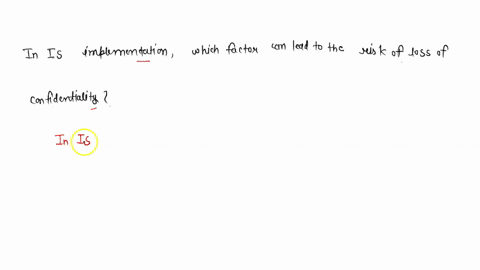 In IS implementation, which factor can lead to the risk of loss of
confidentiality?
In IS